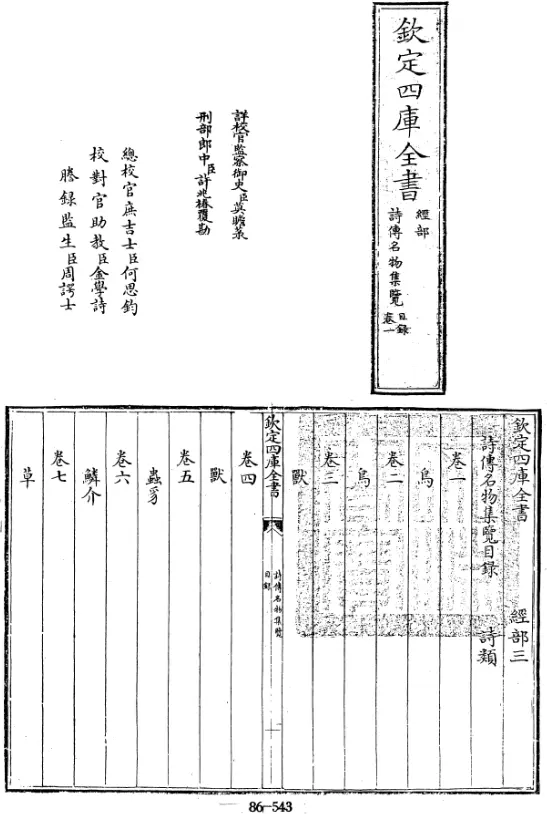 欽定四庫全書
經部
詩傳名物集覽
目錄
卷一
詳校官監察御史臣莫瞻菉
刑部郎中臣許兆椿覆勘
總校官庶吉士臣何思鈞
校對官助教臣金學詩
謄錄監生臣周諤士
欽定四庫全書 經部三
詩傳名物集覽目錄 詩類
卷一
鳥
卷二
鳥
卷三
獸
欽定四庫全書
詩傳名物集覽
目錄
卷四
獸
卷五
蟲豸
卷六
鱗介
卷七
草
86-543